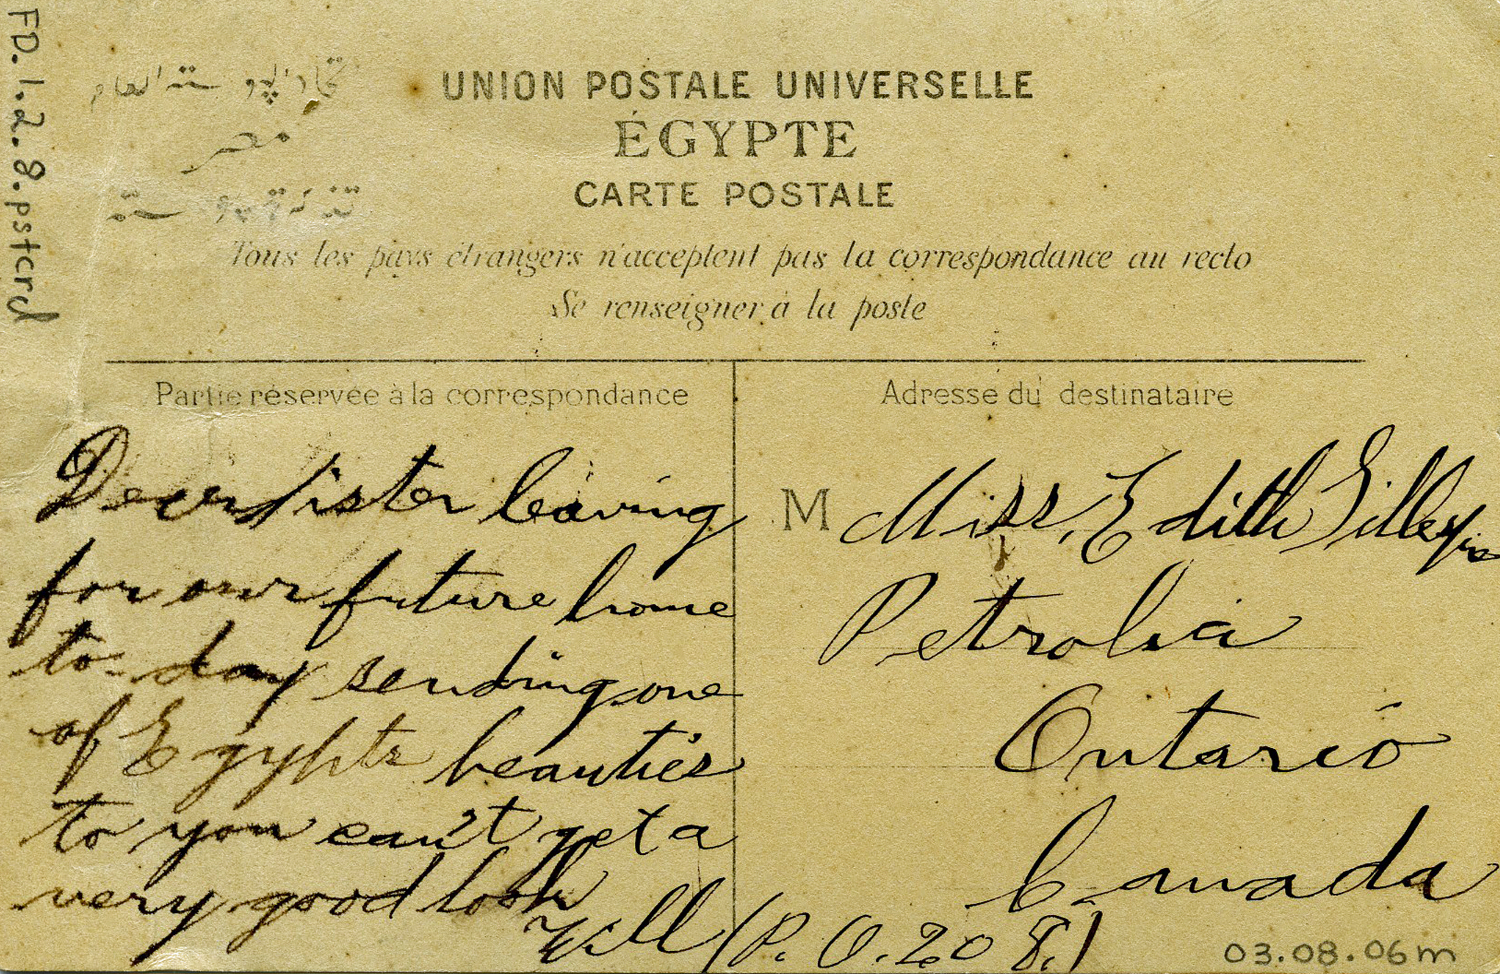 FD.1.2.8.pstcrd
مصر
UNION POSTALE UNIVERSELLE
ÉGYPTE
CARTE POSTALE
Tous les pays étrangers n'acceptent pas la correspondance au recto
Se renseigner à la poste
Partie réservée à la correspondance
Dear sister leaving
for our future home
to-day sending one
of Egypts beauties
to you can't get a
very good look
Will (P.O. 208.)
Adresse du destinataire
M Miss, Edith
Petrolia
Ontario
Canada
03.08.06m